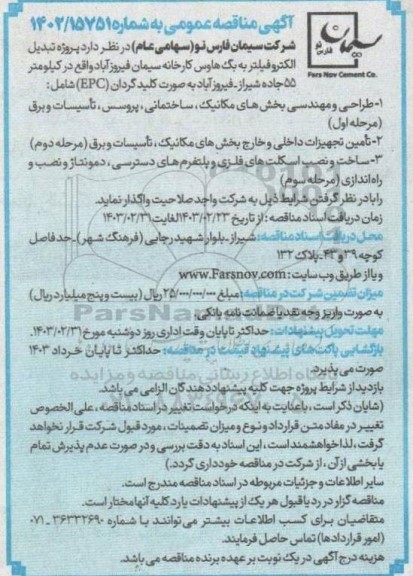 آگهی مناقصه عمومی به شماره ۱۴۰۲/۱۵۷۵۱
سیمان فارس نو
Fars Nov Cement Co.
شرکت سیمان فارس نو (سهامی عام) در نظر دارد پروژه تبدیل
الکتروفیلتر به بگ هاوس کارخانه سیمان فیروزآباد واقع در کیلومتر
۵۵ جاده شیراز ـ فیروزآباد به صورت کلید گردان (EPC) شامل :
۱- طراحی و مهندسی بخش های مکانیک ، ساختمانی، پروسس ، تأسیسات و برق
(مرحله اول)
۲-تأمین تجهیزات داخلی و خارج بخش های مکانیک، تأسیسات و برق (مرحله دوم)
۳- ساخت و نصب اسکلت های فلزی و پلتفرم های دسترسی ، دمونتاژ و نصب و
راه اندازی (مرحله سوم)
را با در نظر گرفتن شرایط ذیل به شرکت واجد صلاحیت واگذار نماید.
زمان دریافت اسناد مناقصه : از تاریخ ۱۴۰۳/۰۲/۲۳ لغایت ۱۴۰۳/۰۲/۳۱
محل دریافت اسناد مناقصه: شیراز ـ بلوار شهید رجایی (فرهنگ شهر) ـ حدفاصل
کوچه ۳۹ و ۴۳ ـ پلاک ۱۳۲
و یا از طریق وب سایت : www.Farsnov.com
میزان تضمین شرکت در مناقصه: مبلغ ۲۵/۰۰۰/۰۰۰/۰۰۰ ریال (بیست و پنج میلیارد ریال)
به صورت واریز وجه نقد یا ضمانت نامه بانکی.
مهلت تحویل پیشنهادات: حداکثر تا پایان وقت اداری روز دوشنبه مورخ ۱۴۰۳/۰۲/۳۱.
بازگشایی پاکت های پیشنهاد قیمت در مناقصه: حداکثر تا پایان خرداد ۱۴۰۳
صورت می پذیرد.
بازدید از شرایط پروژه جهت کلیه پیشنهاد دهندگان الزامی می باشد.
(شایان ذکر است ، با عنایت به اینکه درخواست تغییر در اسناد مناقصه ، علی الخصوص
تغییر در مفاد متن قرارداد و نوع و میزان تضمینات ، مورد قبول شرکت قرار نخواهد
گرفت ، لذا خواهشمند است ، این اسناد به دقت بررسی و در صورت عدم پذیرش تمام
یا بخشی از آن ، از شرکت در مناقصه خودداری گردد.)
سایر اطلاعات و جزئیات مربوطه در اسناد مناقصه مندرج است.
مناقصه گزار در رد یا قبول هر یک از پیشنهادات یا رد کلیه آنها مختار است.
متقاضیان برای کسب اطلاعات بیشتر می توانند با شماره ۳۶۳۳۲۶۹۰ ـ ۰۷۱
(امور قراردادها) تماس حاصل فرمایند.
هزینه درج آگهی در یک نوبت بر عهده برنده مناقصه می باشد.